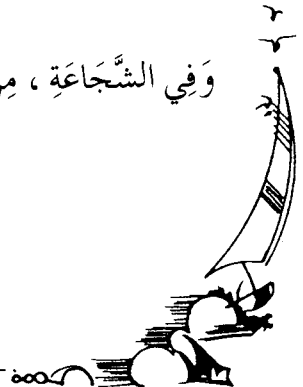 وَفِي الشَّجَاعَةِ ، مِنْ